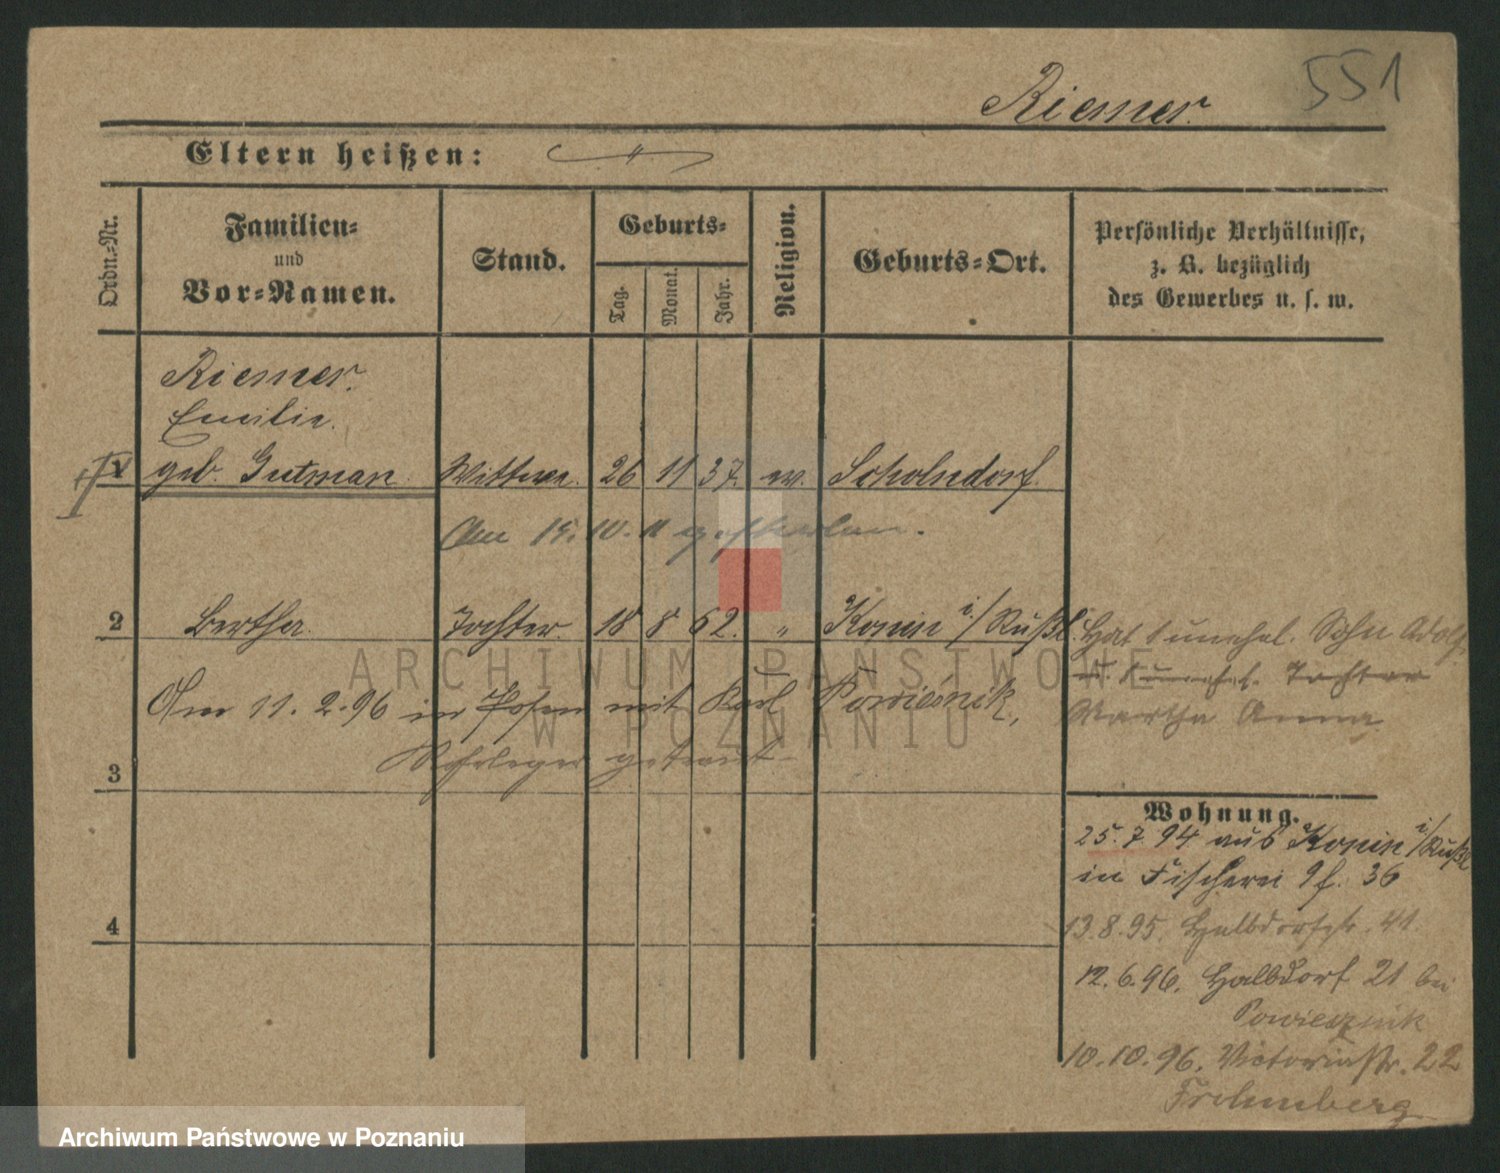 551
Riemer.
Eltern heißen:
Ordn.-Nr.
Familien-
und
Vor-Namen.
Stand.
Geburts-
Tag.
Monat.
Jahr.
Religion.
Geburts-Ort.
Persönliche Verhältnisse,
z. B. bezüglich
des Gewerbes u. s. w.
Riemer.
Emilie.
geb. Gutman. Wittwe. 26 11 37. ev. Scholndorf.
Am 15. 10. 11 gestorben.
2 Bertha. Tochter. 18 8 62. " Konin i/Rußl.
Hat 1 unehel. Sohn Adolf
u. 1 unehel. Tochter
Martha Anna
Am 11. 2. 96 in Posen mit Karl Powiesnik,
getraut
3
4
Wohnung.
25. 7. 94 aus Konin i/Rußl
in Fischerei 36
13. 8. 95. Halbdorfstr. 41.
12. 6. 96. Halbdorf 21 bei
Powiesnik
10. 10. 96. Victoriastr. 22
ARCHIWUM PAŃSTWOWE
W POZNANIU
Archiwum Państwowe w Poznaniu